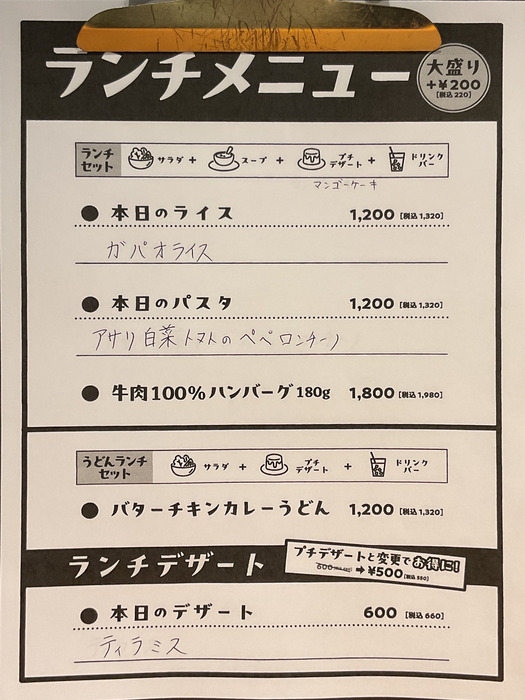 ランチメニュー
大盛り
+¥200
[税込 220]
ランチ
セット
サラダ + スープ + プチデザート + ドリンクバー
マンゴーケーキ
● 本日のライス 1,200 [税込 1,320]
ガパオライス
● 本日のパスタ 1,200 [税込 1,320]
アサリ白菜トマトのペペロンチーノ
● 牛肉100%ハンバーグ180g 1,800 [税込 1,980]
うどんランチ
セット
サラダ + プチデザート + ドリンクバー
● バターチキンカレーうどん 1,200 [税込 1,320]
ランチデザート
プチデザートと変更でお得に!
600 ➔ ¥500 [税込 550]
● 本日のデザート 600 [税込 660]
ティラミス